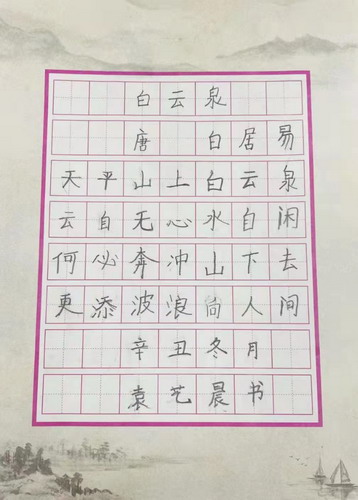 白云泉
唐 白居易
天平山上白云泉
云自无心水自闲
何必奔冲山下去
更添波浪向人间
辛丑冬月
袁艺晨书